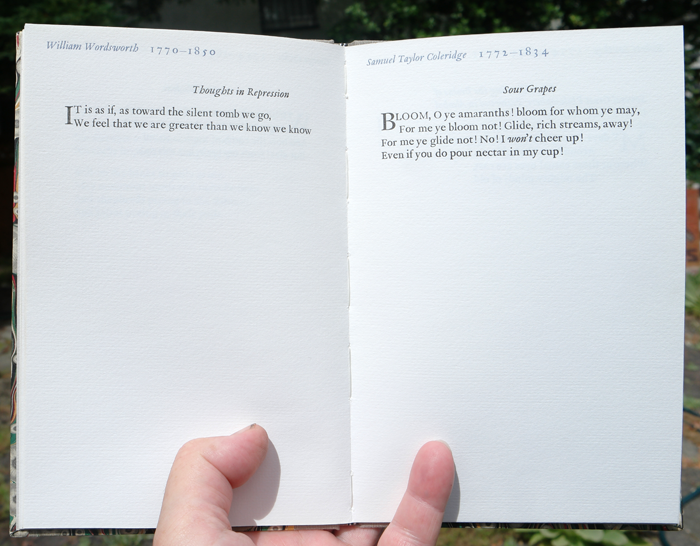 William Wordsworth 1770–1850
Thoughts in Repression
IT is as if, as toward the silent tomb we go,
We feel that we are greater than we know we know
Samuel Taylor Coleridge 1772–1834
Sour Grapes
BLOOM, O ye amaranths! bloom for whom ye may,
For me ye bloom not! Glide, rich streams, away!
For me ye glide not! No! I won't cheer up!
Even if you do pour nectar in my cup!